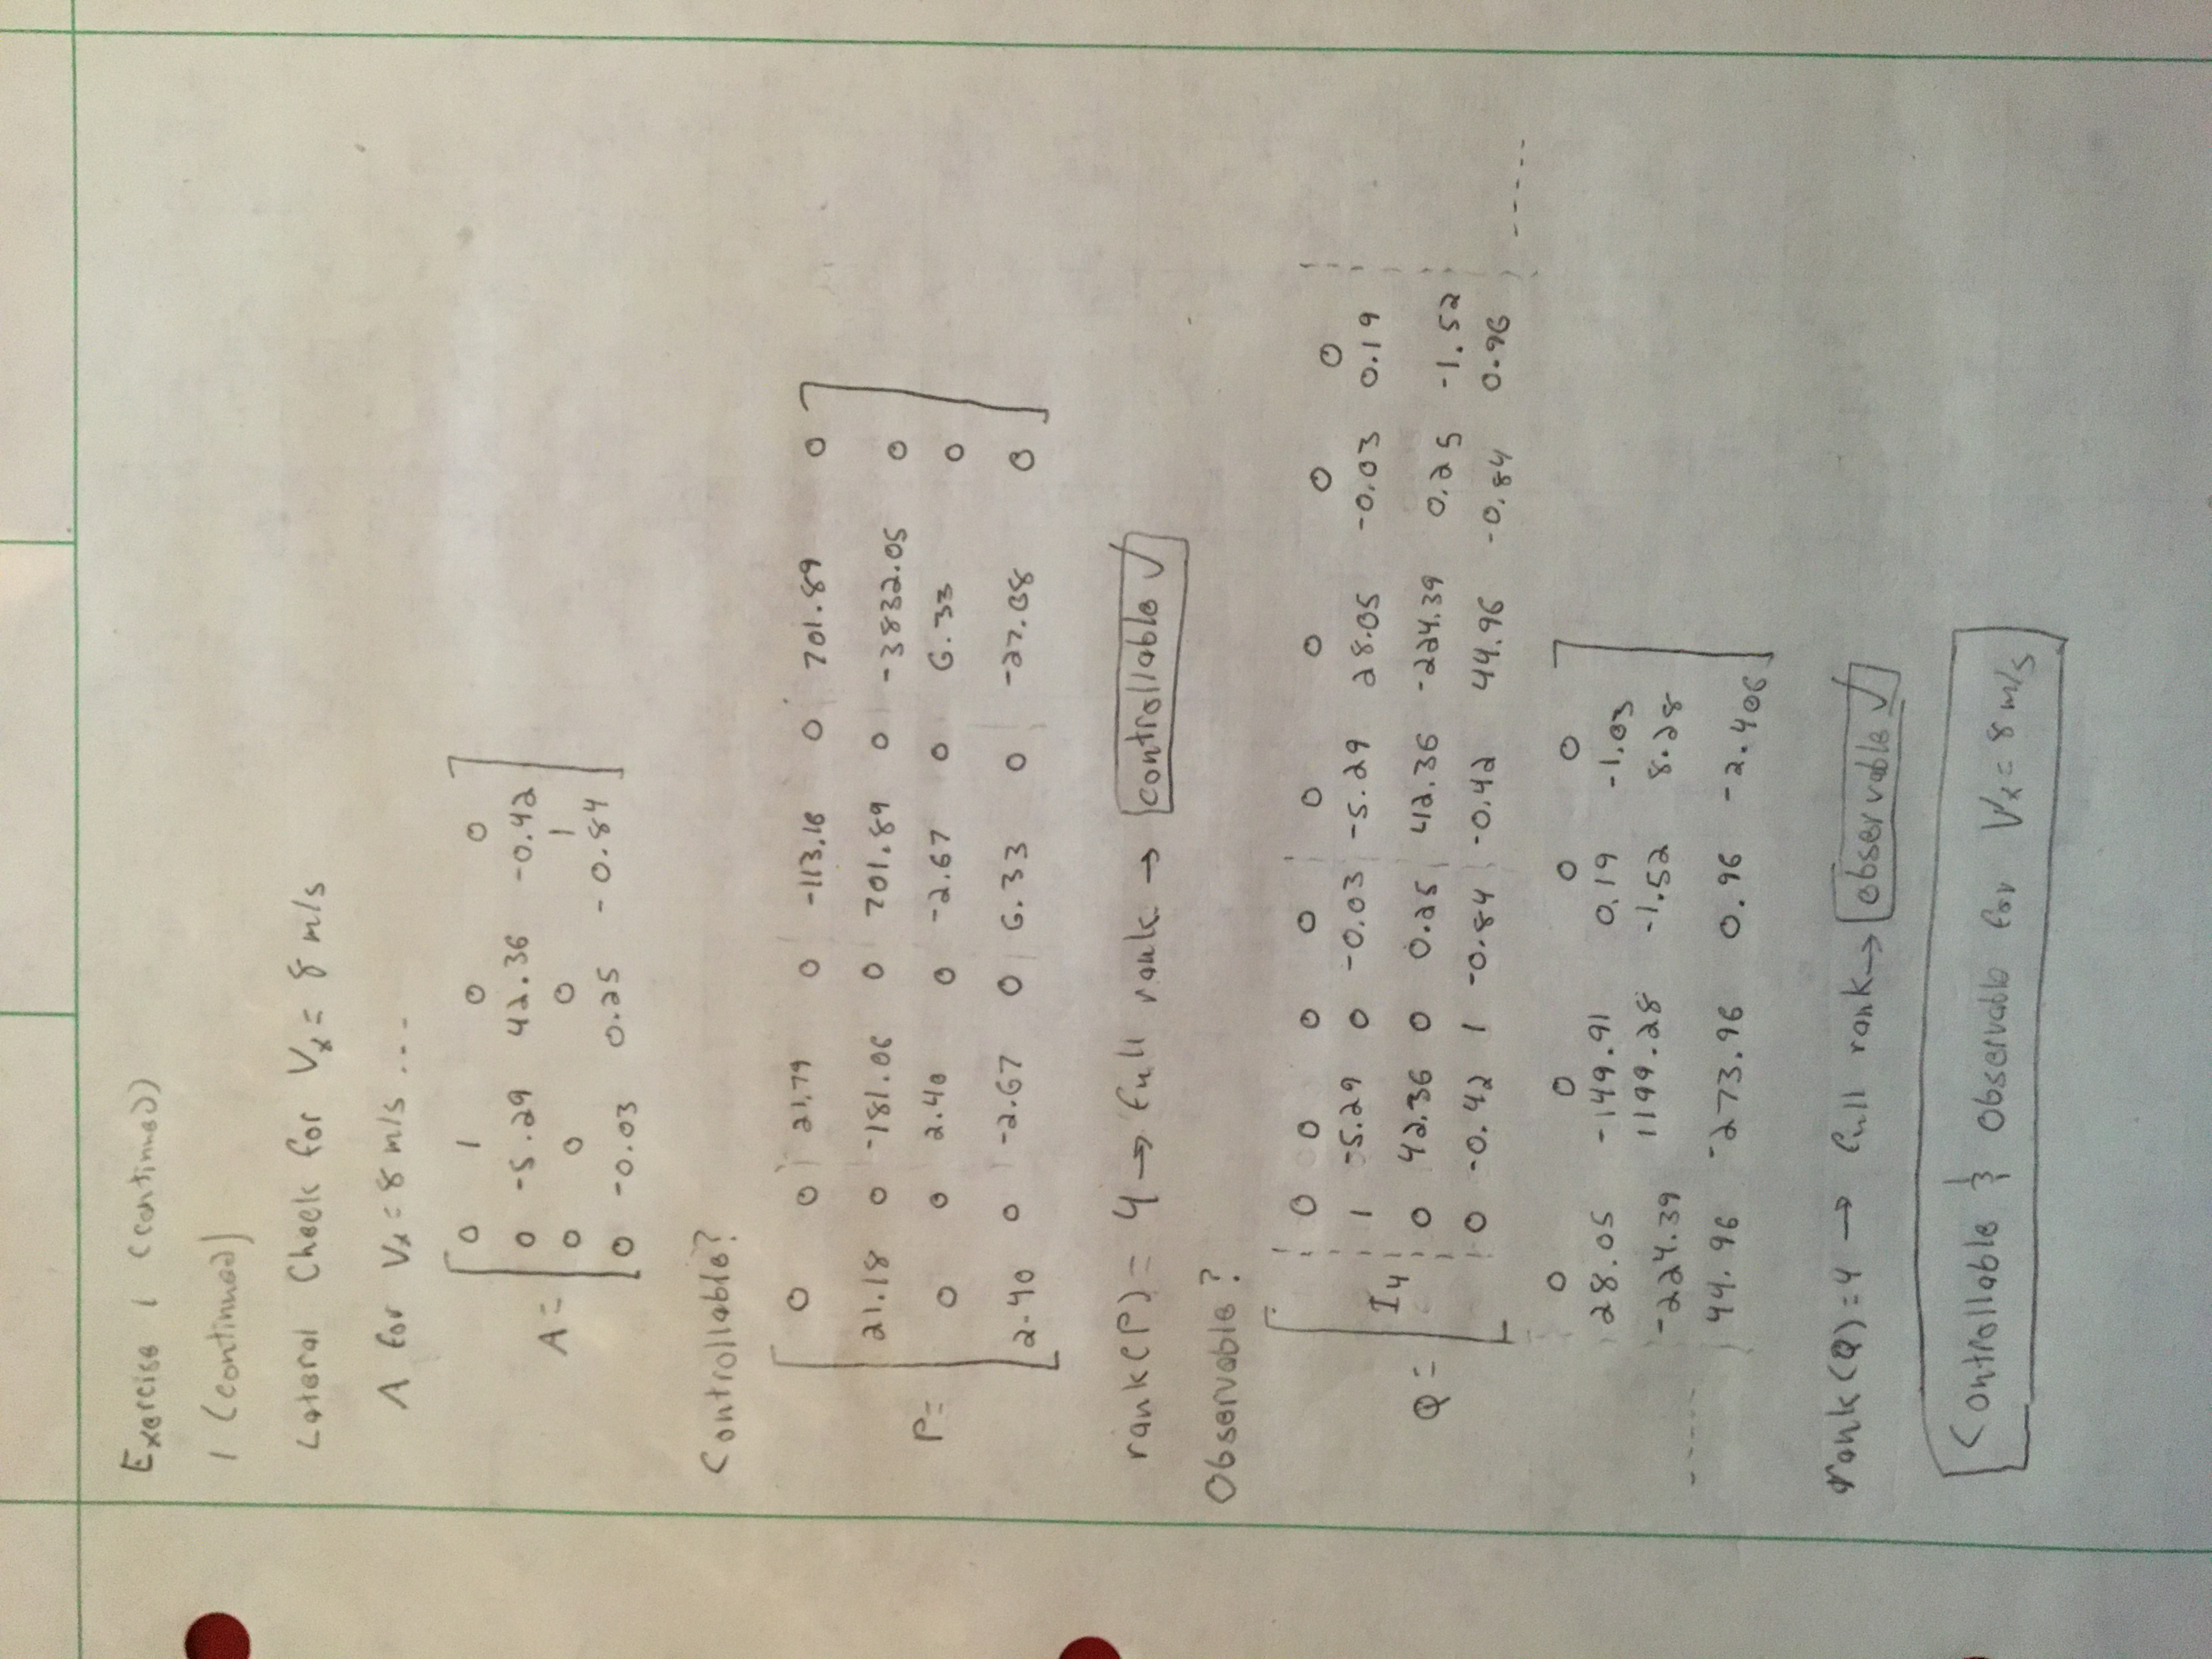 Exercise 1 (continued)
1 (continued)
Lateral Check for Vx = 8 m/s
A for Vx = 8 m/s ...
A = [
0 1 0 0
0 -5.29 42.36 -0.42
0 0 0 1
0 -0.03 0.25 -0.84
]
Controllable?
P = [
0 0 21.79 0 -113.16 0 701.89 0
21.18 0 -181.06 0 701.89 0 -3832.05 0
0 0 2.40 0 -2.67 0 6.33 0
2.40 0 -2.67 0 6.33 0 0
]
rank(P) = 4 → full rank → controllable ✓
Observable?
Q = [ I4
0 0 0 0 0 0 0 0
1 -5.29 0 -0.03 -5.29 28.05 -0.03 0.19
0 42.36 0 0.25 42.36 -224.39 0.25 -1.52
0 -0.42 1 -0.84 -0.42 44.96 -0.84 0.96 -----
0 0 0 0
28.05 -149.91 0.19 -1.03
-224.39 1199.28 -1.52 8.28
----- 44.96 -273.96 0.96 -2.406
]
rank(Q) = 4 → full rank → observable ✓
Controllable & Observable for Vx = 8 m/s